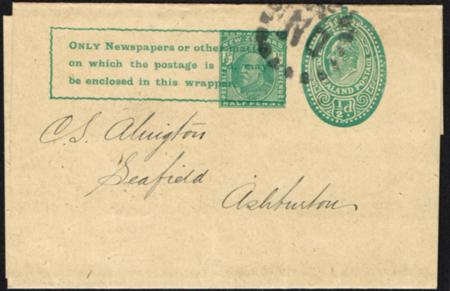 ONLY Newspapers or other matter
on which the postage is may
be enclosed in this wrapper.
HALF PENNY
ALAND POSTAGE
½d
C. S. Alington
Seafield
Ashburton